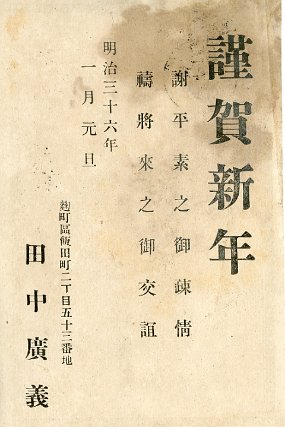 謹賀新年
謝平素之御疎情
禱將來之御交誼
明治三十六年
一月元旦
麴町區飯田町二丁目五十三番地
田中廣義